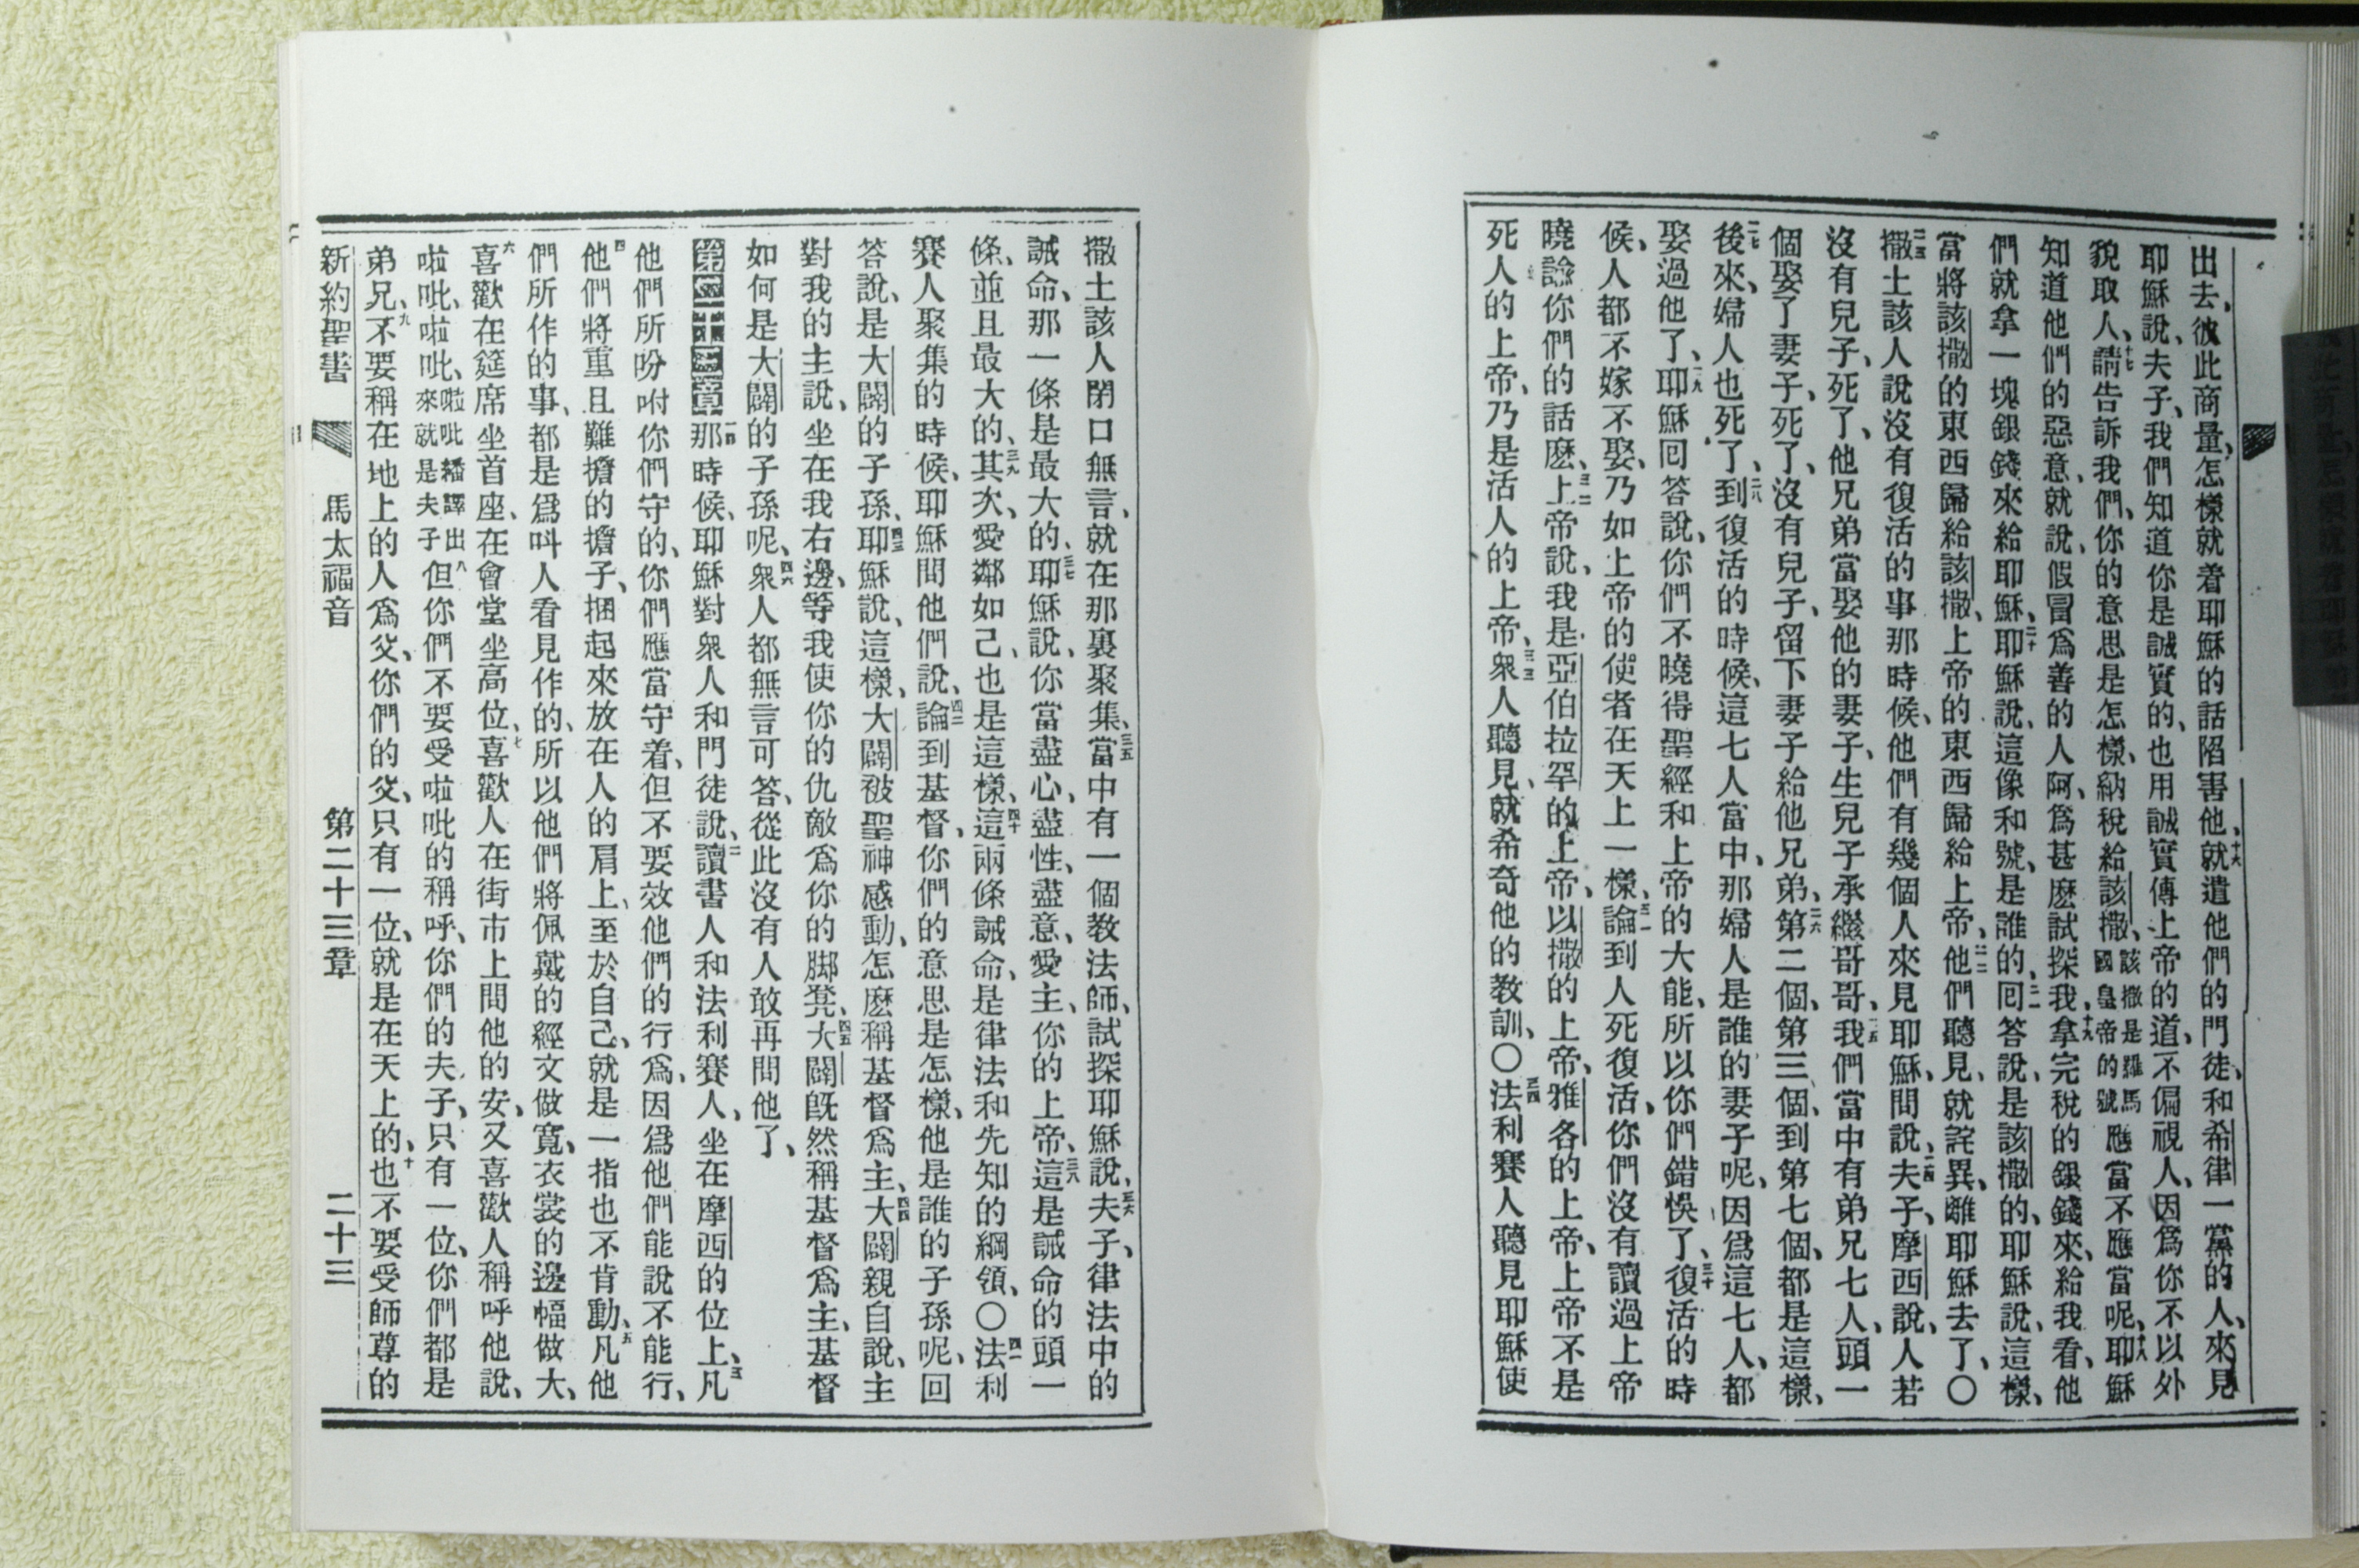 出去、彼此商量、怎樣就着耶穌的話陷害他、十六就遣他們的門徒、和希律一黨的人、來見
耶穌說、夫子、我們知道你是誠實的、也用誠實傳上帝的道、不偏視人、因爲你不以外
貌取人、十七請告訴我們、你的意思是怎樣、納稅給該撒、該撒是羅馬國皇帝的號應當不應當呢、十八耶穌
知道他們的惡意、就說、假冒爲善的人阿、爲甚麽試探我、十九拿完稅的銀錢來、給我看、他
們就拿一塊銀錢來給耶穌、二十耶穌說、這像和號、是誰的、二一回答說、是該撒的、耶穌說、這樣、
當將該撒的東西歸給該撒、上帝的東西歸給上帝、二二他們聽見、就詫異、離耶穌去了、〇
二三撒土該人說沒有復活的事那時候、他們有幾個人來見耶穌、問說、二四夫子、摩西說、人若
沒有兒子、死了、他兄弟當娶他的妻子、生兒子承繼哥哥、二五我們當中有弟兄七人、頭一
個娶了妻子、死了、沒有兒子、留下妻子給他兄弟、二六第二個、第三個、到第七個、都是這樣、
二七後來、婦人也死了、二八到復活的時候、這七人當中、那婦人是誰的妻子呢、因爲這七人、都
娶過他了、二九耶穌回答說、你們不曉得聖經和上帝的大能、所以你們錯悞了、三十復活的時
候、人都不嫁不娶、乃如上帝的使者在天上一樣、三一論到人死復活、你們沒有讀過上帝
曉諭你們的話麽、三二上帝說、我是亞伯拉罕的上帝、以撒的上帝、雅各的上帝、上帝不是
死人的上帝、乃是活人的上帝、三三衆人聽見、就希奇他的教訓、〇三四法利賽人聽見耶穌使
撒土該人閉口無言、就在那裏聚集、三五當中有一個教法師、試探耶穌說、三六夫子、律法中的
誡命、那一條是最大的、三七耶穌說、你當盡心、盡性、盡意、愛主、你的上帝、三八這是誡命的頭一
條、並且最大的、三九其次、愛鄰如己、也是這樣、四十這兩條誡命、是律法和先知的綱領、〇四一法利
賽人聚集的時候、耶穌問他們說、四二論到基督、你們的意思是怎樣、他是誰的子孫呢、回
答說、是大闢的子孫、四三耶穌說、這樣、大闢被聖神感動、怎麽稱基督爲主、四四大闢親自說、主
對我的主說、坐在我右邊、等我使你的仇敵爲你的脚凳、四五大闢旣然稱基督爲主、基督
如何是大闢的子孫呢、四六衆人都無言可答、從此沒有人敢再問他了、
第二十三章一那時候、耶穌對衆人和門徒說、二讀書人和法利賽人、坐在摩西的位上、三凡
他們所吩咐你們守的、你們應當守着、但不要效他們的行爲、因爲他們能說不能行、
四他們將重且難擔的擔子、捆起來放在人的肩上、至於自己、就是一指也不肯動、五凡他
們所作的事、都是爲叫人看見作的、所以他們將佩戴的經文做寬、衣裳的邊幅做大、
六喜歡在筵席坐首座、在會堂坐高位、七喜歡人在街市上問他的安、又喜歡人稱呼他說、
啦吡、啦吡、啦吡繙譯出來就是夫子八但你們不要受啦吡的稱呼、你們的夫子、只有一位、你們都是
弟兄、九不要稱在地上的人爲父、你們的父、只有一位、就是在天上的、十也不要受師尊的
新約聖書 馬太福音 第二十三章 二十三